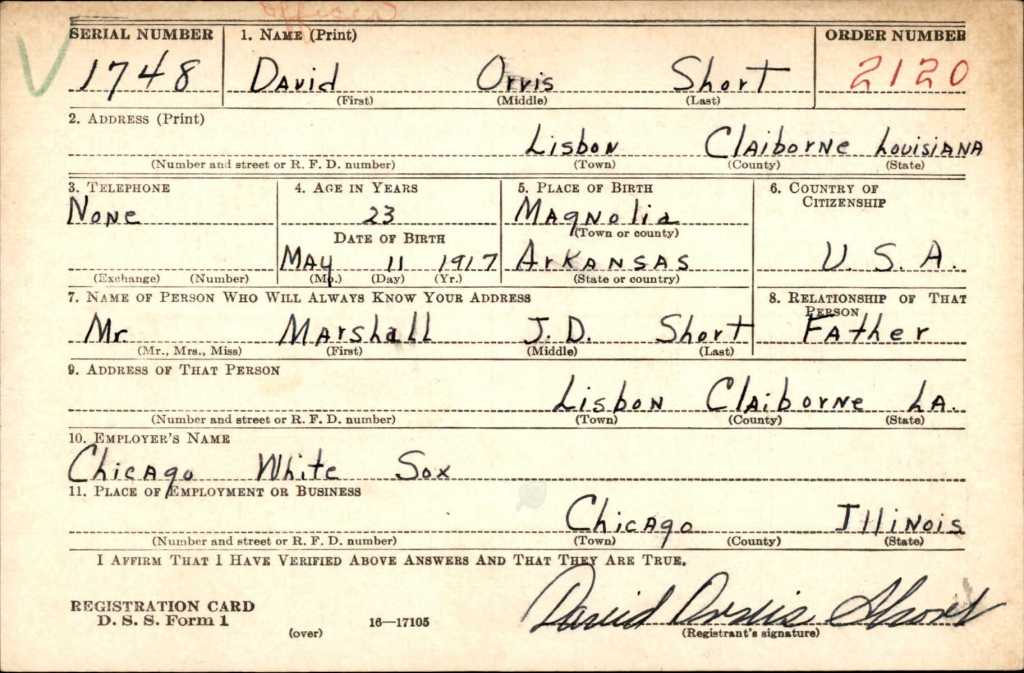 Officer
SERIAL NUMBER 1. NAME (Print) ORDER NUMBER
V 1748 David Orvis Short 2120
(First) (Middle) (Last)
2. ADDRESS (Print)
Lisbon Claiborne Louisiana
(Number and street or R. F. D. number) (Town) (County) (State)
3. TELEPHONE 4. AGE IN YEARS 5. PLACE OF BIRTH 6. COUNTRY OF CITIZENSHIP
None 23 Magnolia
(Town or county)
DATE OF BIRTH
May 11 1917 Arkansas U. S. A.
(Exchange) (Number) (Mo.) (Day) (Yr.) (State or country)
7. NAME OF PERSON WHO WILL ALWAYS KNOW YOUR ADDRESS 8. RELATIONSHIP OF THAT PERSON
Mr. Marshall J. D. Short Father
(Mr., Mrs., Miss) (First) (Middle) (Last)
9. ADDRESS OF THAT PERSON
Lisbon Claiborne La.
(Number and street or R. F. D. number) (Town) (County) (State)
10. EMPLOYER'S NAME
Chicago White Sox
11. PLACE OF EMPLOYMENT OR BUSINESS
Chicago Illinois
(Number and street or R. F. D. number) (Town) (County) (State)
I AFFIRM THAT I HAVE VERIFIED ABOVE ANSWERS AND THAT THEY ARE TRUE.
David Orvis Short
REGISTRATION CARD
D. S. S. Form 1 (over) 16—17105 (Registrant's signature)